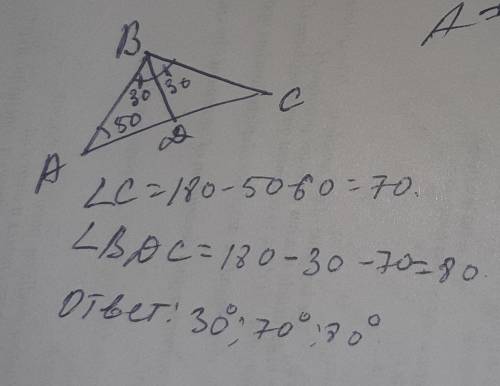 A
B
30 30
50
C
A D
∠C = 180 - 50 60 = 70.
∠BDC = 180 - 30 - 70 = 80.
Ответ: 30°; 70°; 80°